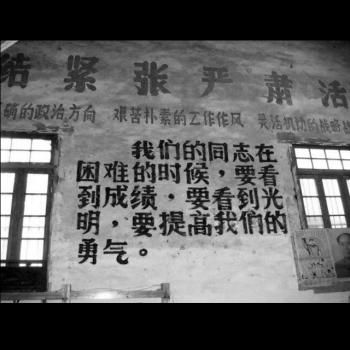 结 紧 张 严 肃 活
确的政治方向 艰苦朴素的工作作风 灵活机动的战略战
我们的同志在
困难的时候，要看
到成绩，要看到光
明，要提高我们的
勇气。